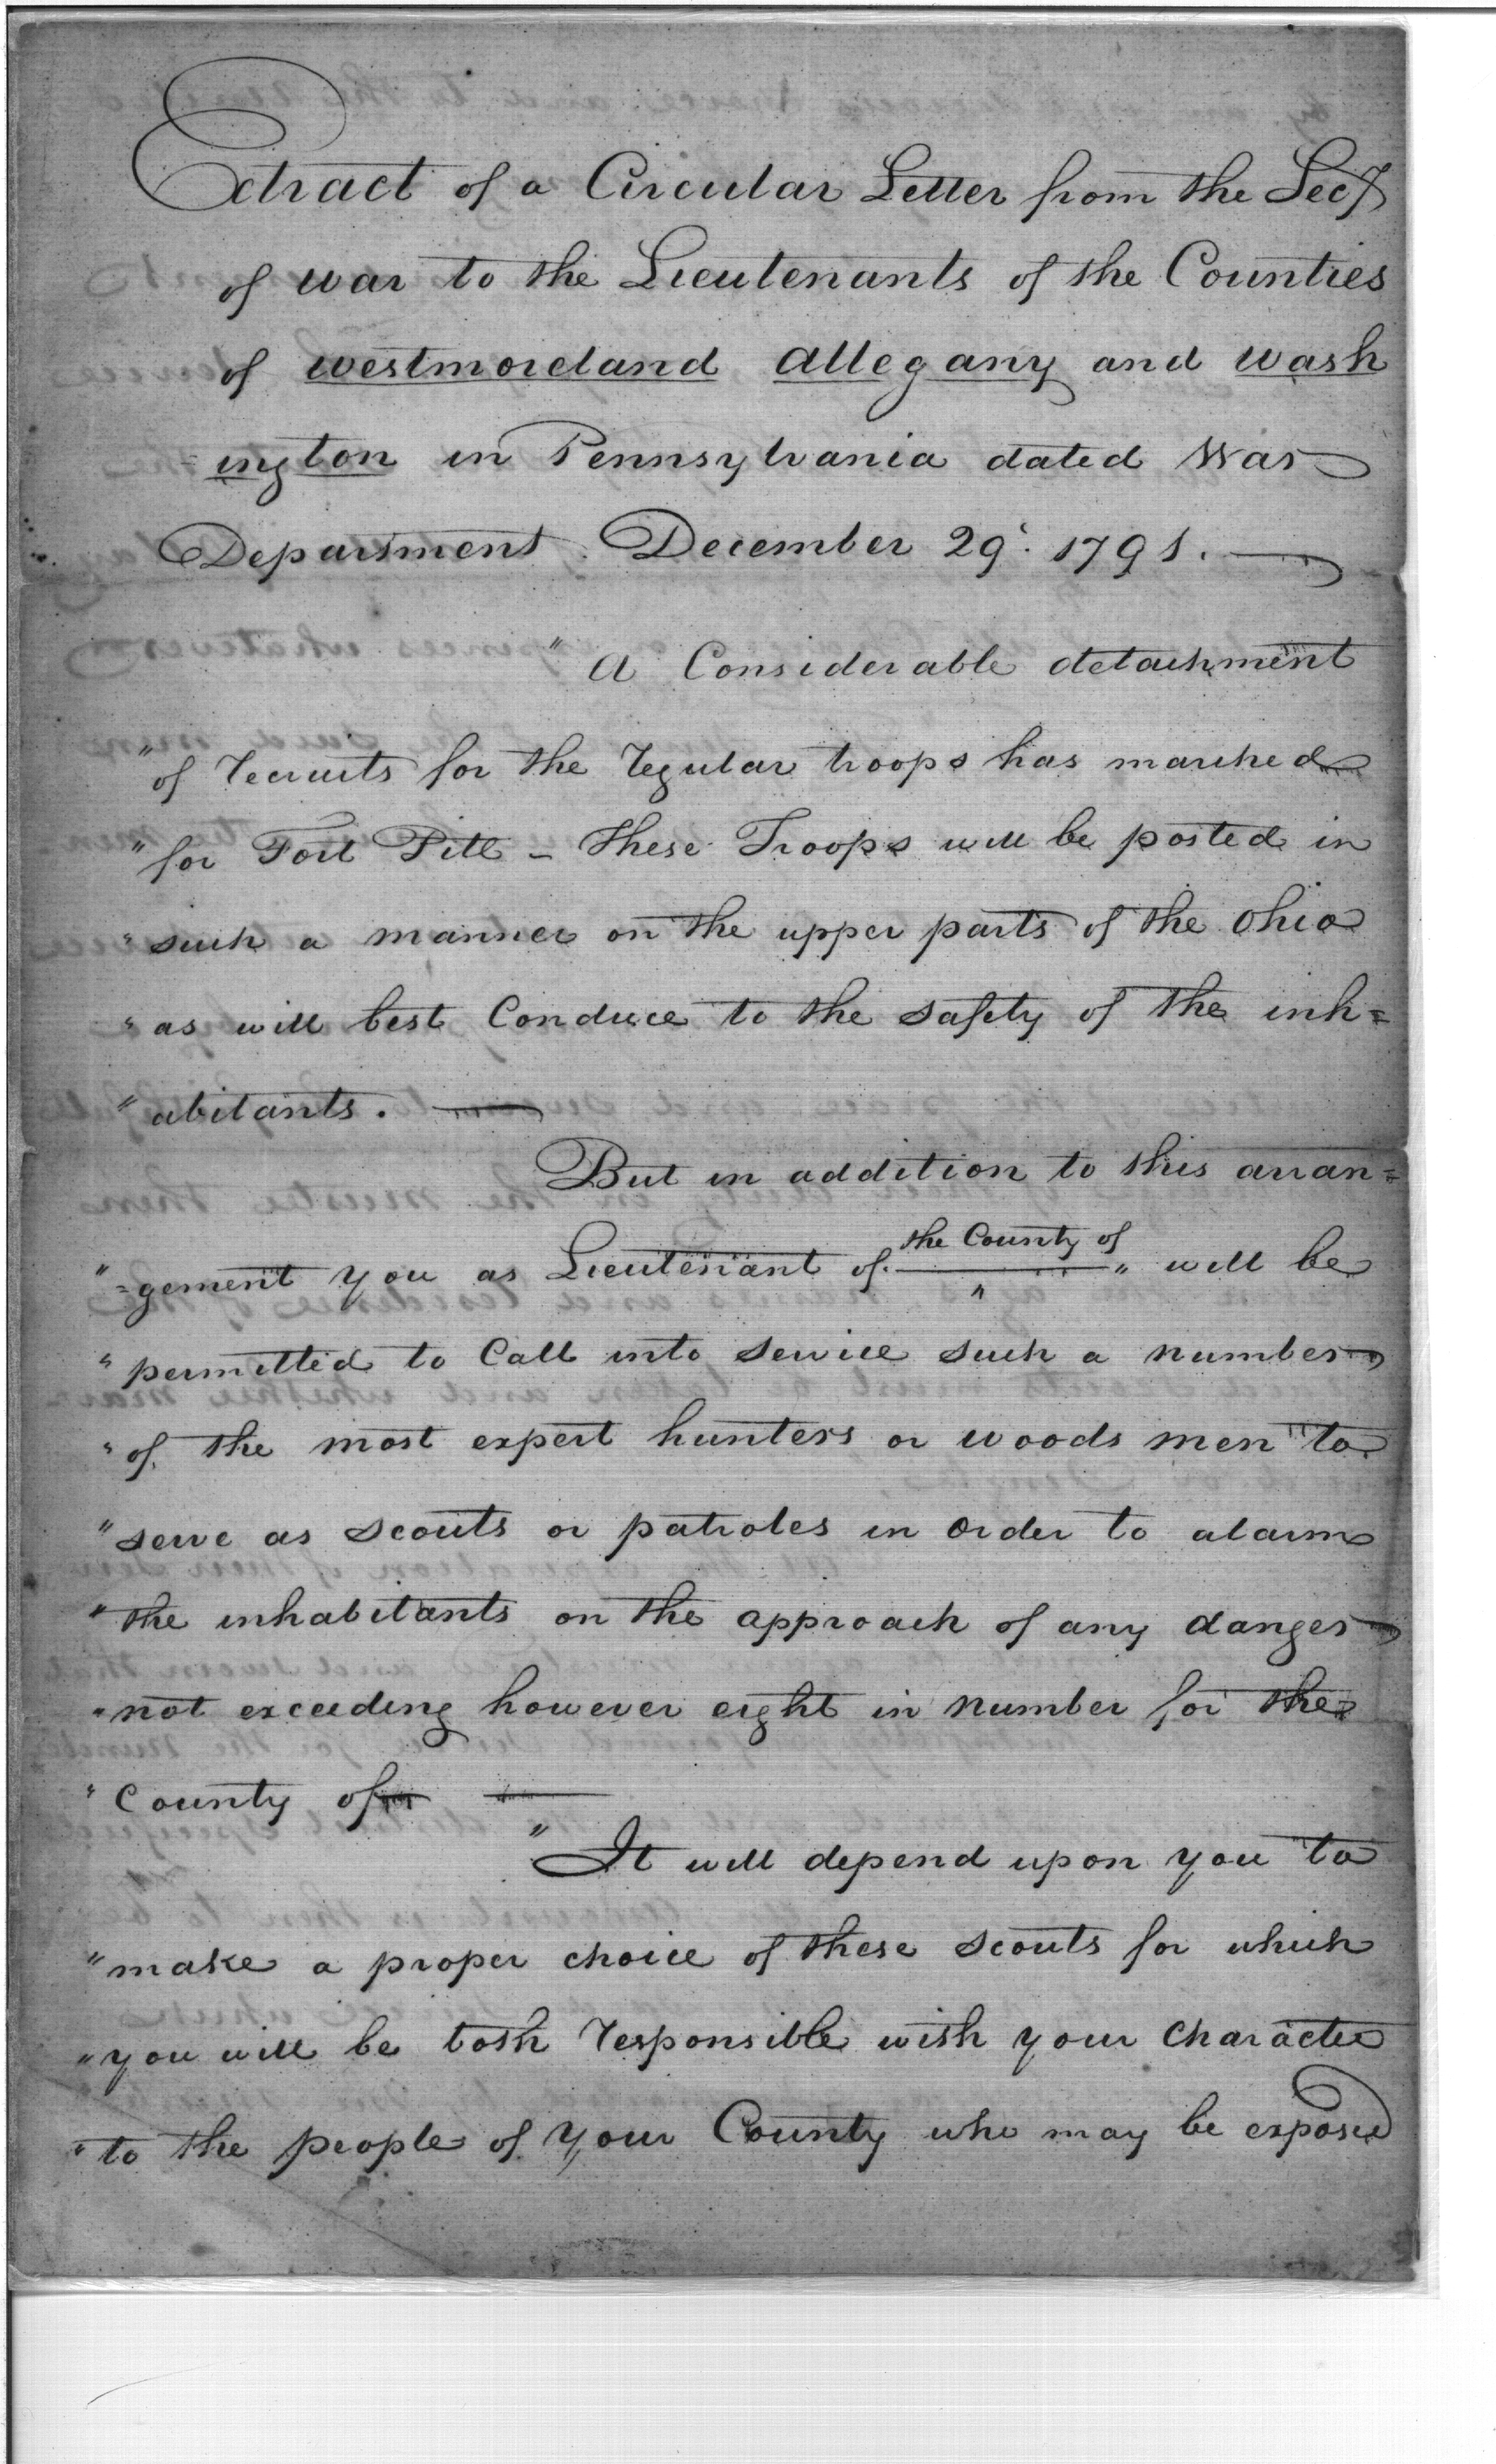 Extract of a Circular Letter from the Secy
of war to the Lieutenants of the Counties
of westmoreland Allegany and wash
=ington in Pennsylvania dated War
Department December 29. 1791. —
" A Considerable detachment
" of recruits for the regular troops has marched
" for Fort Pitt - these Troops will be posted in
" such a manner on the upper parts of the Ohio
" as will best Conduce to the safety of the inh=
" abitants. —
But in addition to this arran=
the County of
" =gement you as Lieutenant of — " will be
" permitted to Call into service such a number
" of the most expert hunters or woods men to
" serve as scouts or patroles in order to alarm
" the inhabitants on the approach of any danger
" not exceeding however eight in number for the
" County of — —
" It will depend upon you to
" make a proper choice of these scouts for which
" you will be both responsible with your Character
" to the people of your County who may be exposed